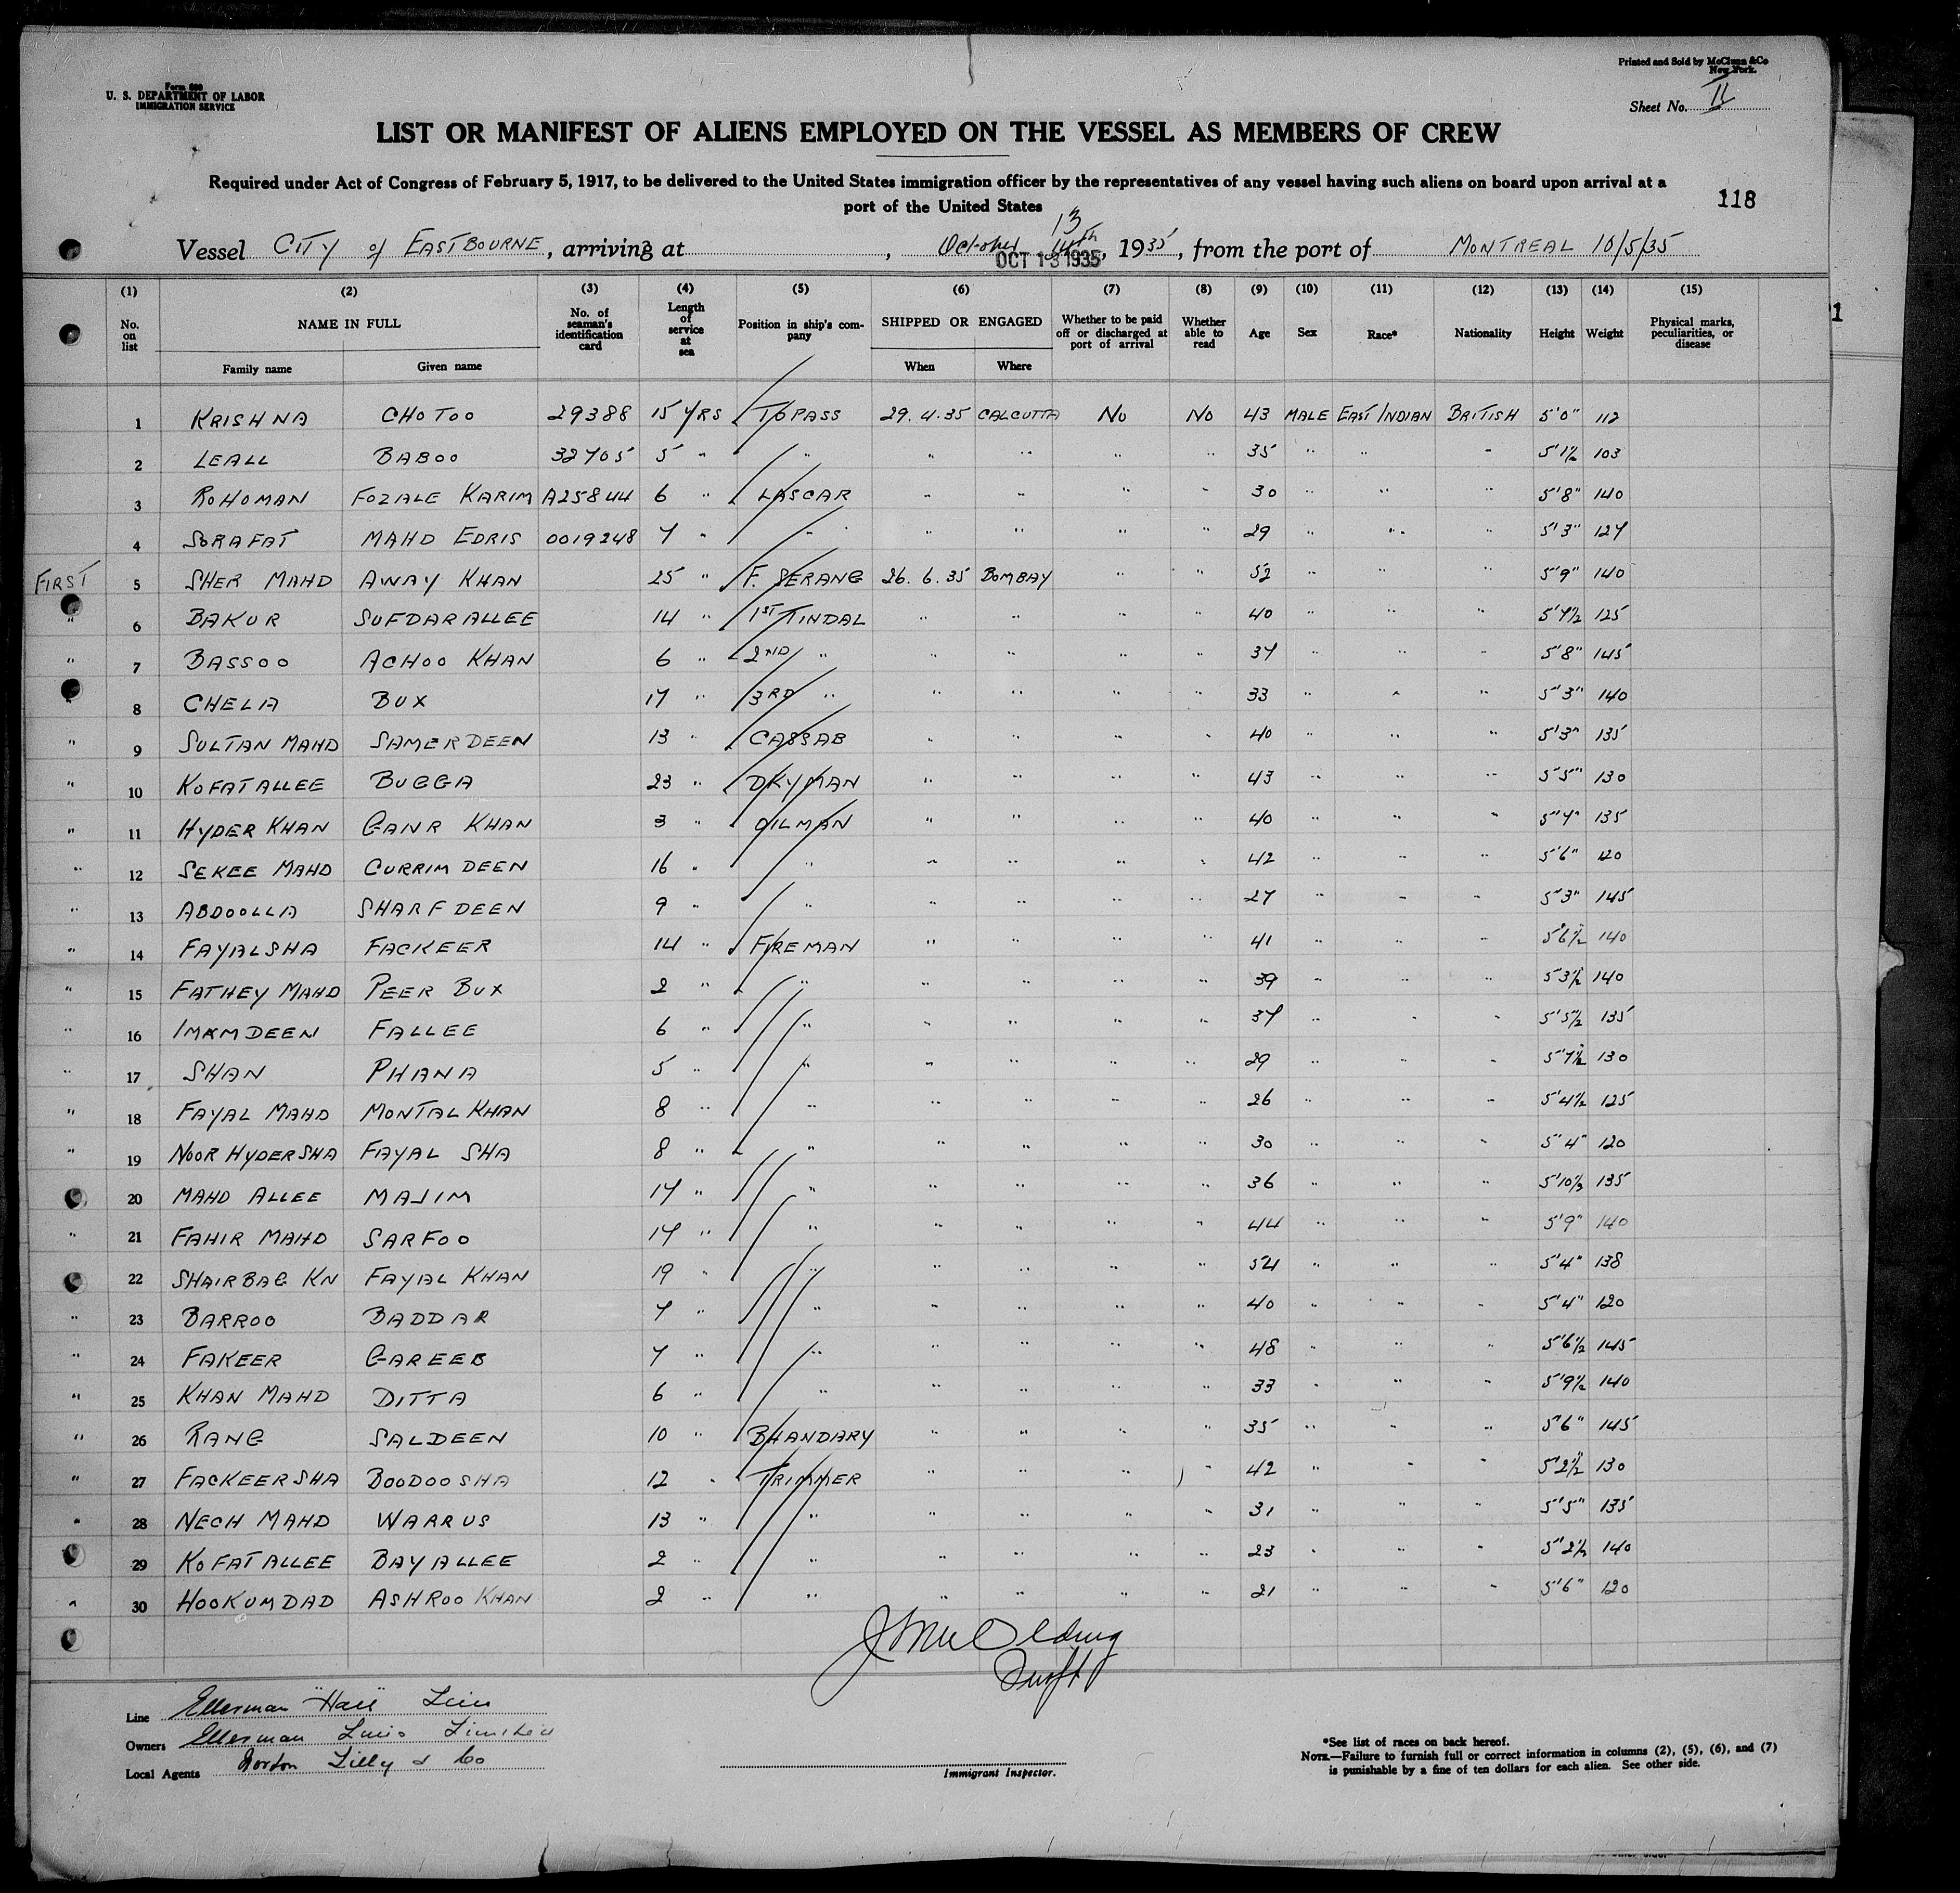 Form 689
U. S. DEPARTMENT OF LABOR
IMMIGRATION SERVICE
Printed and Sold by McClunn &Co
New York.
Sheet No. II
LIST OR MANIFEST OF ALIENS EMPLOYED ON THE VESSEL AS MEMBERS OF CREW
Required under Act of Congress of February 5, 1917, to be delivered to the United States immigration officer by the representatives of any vessel having such aliens on board upon arrival at a
port of the United States
118
13
Vessel CITY of EASTBOURNE, arriving at , October 14th, 1935, from the port of MONTREAL 10/5/35
OCT 13 1935
(1) (2) (3) (4) (5) (6) (7) (8) (9) (10) (11) (12) (13) (14) (15)
No. on list NAME IN FULL Family name Given name No. of seaman's identification card Length of service at sea Position in ship's company SHIPPED OR ENGAGED When Where Whether to be paid off or discharged at port of arrival Whether able to read Age Sex Race* Nationality Height Weight Physical marks, peculiarities, or disease
1 KRISHNA CHOTOO 29388 15 YRS TOPASS 29.4.35 CALCUTTA NO NO 43 MALE EAST INDIAN BRITISH 5'0" 112
2 LEALL BABOO 32705 5 " " " " " " 35 " " " 5'1½ 103
3 ROHOMAN FOZALE KARIM A25844 6 " LASCAR " " " " 30 " " " 5'8" 140
4 SORAFAT MAHD EDRIS 0019248 7 " " " " " " 29 " " " 5'3" 127
FIRST 5 SHER MAHD AWAY KHAN 25 " F. SERANG 26.6.35 BOMBAY " " 52 " " " 5'9" 140
" 6 BAKUR SUFDARALLEE 14 " 1ST TINDAL " " " " 40 " " " 5'7½ 125
" 7 BASSOO ACHOO KHAN 6 " 2ND " " " " " 37 " " " 5'8" 145
" 8 CHELA BUX 17 " 3RD " " " " " 33 " " " 5'3" 140
" 9 SULTAN MAHD SAMERDEEN 13 " CASSAB " " " " 40 " " " 5'3" 135
" 10 KOFATALLEE BUGGA 23 " DKYMAN " " " " 43 " " " 5'5" 130
" 11 HYDER KHAN GANR KHAN 3 " OILMAN " " " " 40 " " " 5'7" 135
" 12 SEKEE MAHD CURRIM DEEN 16 " " " " " " 42 " " " 5'6" 120
" 13 ABDOOLLA SHARF DEEN 9 " " " " " " 27 " " " 5'3" 145
" 14 FAYALSHA FACKEER 14 " FIREMAN " " " " 41 " " " 5'6½ 140
" 15 FATHEY MAHD PEER BUX 2 " " " " " " 39 " " " 5'3½ 140
" 16 IMAMDEEN FALLEE 6 " " " " " " 37 " " " 5'5½ 135
" 17 SHAN PHANA 5 " " " " " " 29 " " " 5'7½ 130
" 18 FAYAL MAHD MONTAL KHAN 8 " " " " " " 26 " " " 5'4½ 125
" 19 NOOR HYDERSHA FAYAL SHA 8 " " " " " " 30 " " " 5'4" 120
20 MAHD ALLEE MAJIM 17 " " " " " " 36 " " " 5'10½ 135
" 21 FAHIR MAHD SARFOO 17 " " " " " " 44 " " " 5'9" 140
22 SHAIRBAG KN FAYAL KHAN 19 " " " " " " 54 " " " 5'4" 138
" 23 BARROO BADDAR 7 " " " " " " 40 " " " 5'4" 120
" 24 FAKEER GAREEB 7 " " " " " " 48 " " " 5'6½ 145
" 25 KHAN MAHD DITTA 6 " " " " " " 33 " " " 5'9½ 140
" 26 RANG SALDEEN 10 " BHANDARY " " " " 35 " " " 5'6" 145
" 27 FACKEERSHA BOODOOSHA 12 " TRIMMER " " " " 42 " " " 5'2½ 130
" 28 NECH MAHD WARRUS 13 " " " " " " 31 " " " 5'5" 135
29 KOFATALLEE BAYALLEE 2 " " " " " " 23 " " " 5'2½ 140
" 30 HOOKUMDAD ASHROO KHAN 2 " " " " " " 21 " " " 5'6" 120
Line Ellerman "Hall" Line
Owners Ellerman Lines Limited
Local Agents Norton Lilly & Co
Immigrant Inspector.
*See list of races on back hereof.
NOTE.—Failure to furnish full or correct information in columns (2), (5), (6), and (7)
is punishable by a fine of ten dollars for each alien. See other side.